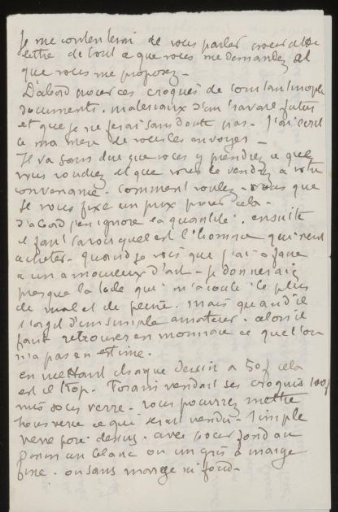 Je me contenterai de vous parler dans cette
lettre de tout ce que vous me demandez et
que vous me proposez -
D'abord pour ces croquis de Constantinople
documents, materiaux d'un travail futur
et que je ne ferai sans doute pas - J'ai écrit
à ma mère de vous les envoyer -
Il va sans dire que vous y prendrez ce que
vous voudrez et que vous le vendrez à votre
convenance. Comment voulez-vous que
je vous fixe un prix pour cela -
d'abord j'en ignore la quantité, ensuite
il faut savoir quel est l'homme qui veut
acheter - quand je vois que j'ai à faire
à un amoureux d'art - je donnerais
presque la toile qui m'a couté le plus
de mal et de peine. mais quand il
s'agit d'un simple amateur - alors il
faut retrouver en monnaie ce que l'on
n'a pas en estime.
en mettant chaque dessin à 50f cela
est-il trop. Forain vendait ses croquis 100f
mis sous verre - vous pourrez mettre
sous verre ce qui sera vendu - simple
verre posé dessus - avec pour fond un
blanc ou un gris à marge
fine - ou sans marge ni fond -